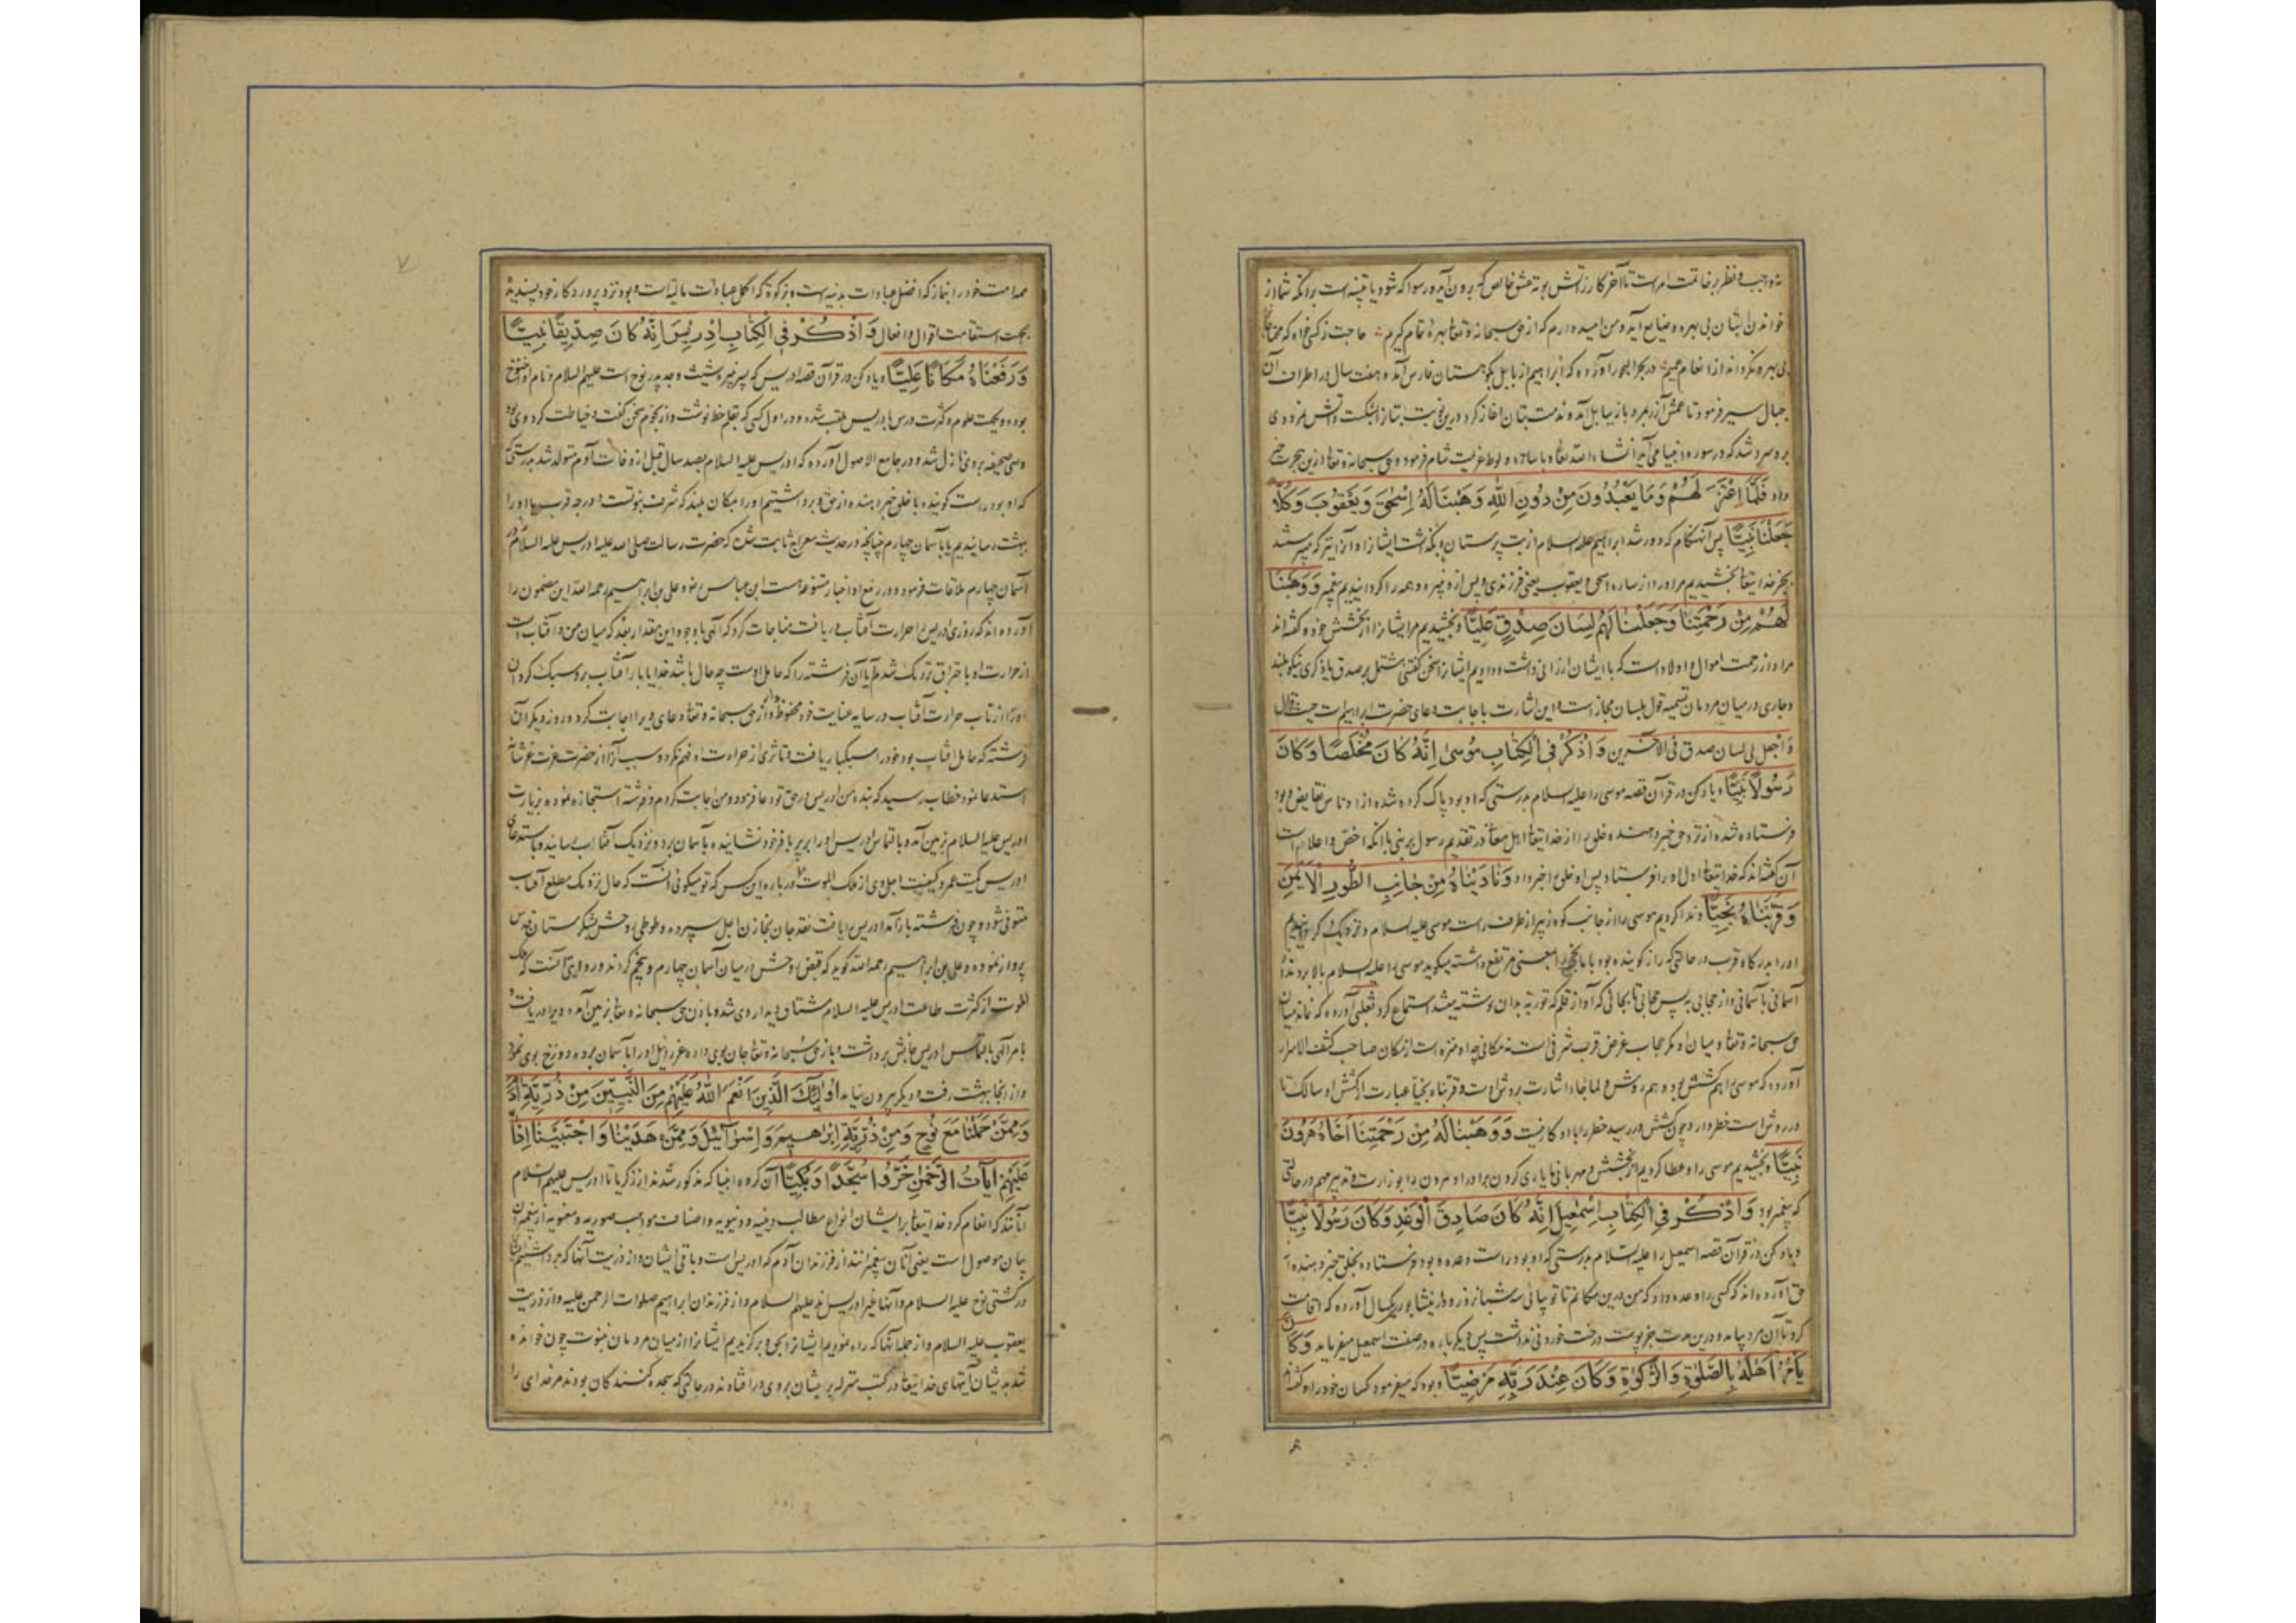 نه واجب و نظر بر خاتمت امر است تا آخر کار زآتش بوته عشق خالص که برون آید و رسوا که شود یا تنبیه است بر آنکه شما از
خواندن بتان بی بهره و ضایع آید و من امیدوارم که از حق سبحانه و تعالی بهره تمام گیرم حاجت ز کسی خواه که محتاجانرا
بی بهره نگرداند از انعام عمیم در بحر آورده که ابراهیم از بابل بکوهستان فارس آمد و هفت سال در اطراف آن
جبال سیر فرمود تا عمش آزر بمرد باز ببابل آمد و مذمت بتان آغاز کرد درین نوبت بتانرا بشکست و آتش نمرودی
برو سرد شد که در سوره انبیا می آید انشاء الله تعالی و با ساره و لوط عزیمت شام فرمود و حق سبحانه و تعالی ازین هجرت خبر
داد فَلَمَّا اعْتَزَلَهُمْ وَمَا يَعْبُدُونَ مِنْ دُونِ اللهِ وَهَبْنَا لَهُ إِسْحٰقَ وَيَعْقُوبَ وَكُلًّا
جَعَلْنَا نَبِيًّا پس آنهنگام که دور شد ابراهیم علیه السلام از بت پرستان و بگذاشت ایشانرا و آنرا نیز که میپرستند
بجز خدایتعالی بخشیدیم مر او را از ساره اسحق و یعقوب یعنی فرزندی و پس ازو نبیره و همه را گردانیدیم پیغمبر وَوَهَبْنَا
لَهُمْ مِنْ رَحْمَتِنَا وَجَعَلْنَا لَهُمْ لِسَانَ صِدْقٍ عَلِيًّا و بخشیدیم مر ایشانرا از بخشش خود و گفته اند
مراد از رحمت اموال و اولاد است که با ایشان ارزانی داشت و دادیم ایشانرا سخن گفتنی مشتمل بر صدق یا ذکری نیکو بلند
و جاری در میان مردمان تسمیه قول بلسان مجاز است و این اشارت باجابت دعای حضرت ابراهیم است حیث قال
وَاجعل لی لسان صدق فی الآخرین وَاذْكُرْ فِي الْكِتَابِ مُوسٰى إِنَّهُ كَانَ مُخْلَصًا وَكَانَ
رَسُولًا نَبِيًّا و یاد کن در قرآن قصه موسی را علیه السلام بدرستی که او بود پاک کرده شده از ادناس نقایص و بود
فرستاده شده از نزد حق خبر دهنده خلق را از خدایتعالی اهل معانی در تقدیم رسول بر نبی با آنکه اخص و اعلا است
آن گفته اند که خدایتعالی اول او را فرستاد پس او خلق را خبر داد وَنَادَيْنَاهُ مِنْ جَانِبِ الطُّورِ الْأَيْمَنِ
وَقَرَّبْنَاهُ نَجِيًّا و ندا کردیم موسی را از جانب کوه زبیر از طرف راست موسی علیه السلام و نزدیک گردانیدیم
او را بدرگاه قرب در حالتی که راز گوینده بود با ما نجی را بمعنی مرتفع داشته میگوید موسی را علیه السلام بالا بردند از
آسمانی بآسمانی و از حجابی به پس حجابی تا بجائی که آواز قلم که توریة بدان نوشته میشد استماع کرد ثعلبی آورده که نماند میان
حق سبحانه و تعالی و میان او مگر حجاب غرض قرب شرفی است نه مکانی چه او منزه است از مکان صاحب کشف الاسرار
آورده که موسی را هم کشش بود و هم روش و لما جاء اشارت بروش اوست و قربناه نجیا عبارت از کشش او سالک تا
در روش است خطر دارد و چون کشش در رسید خطر را با او کار نیست وَوَهَبْنَا لَهُ مِنْ رَحْمَتِنَا أَخَاهُ هٰرُونَ
نَبِيًّا و بخشیدیم موسی را و عطا کردیم از بخشش و مهربانی ما یاری کردن برادر او هرون را بوزارت و تدبیر مهم در حالتی
که پیغمبر بود وَاذْكُرْ فِي الْكِتَابِ إِسْمٰعِيلَ إِنَّهُ كَانَ صَادِقَ الْوَعْدِ وَكَانَ رَسُولًا نَبِيًّا
و یاد کن در قرآن قصه اسمعیل را علیه السلام بدرستی که او بود راست وعده و بود فرستاده بخلق خبر دهنده از
حق آورده اند که کسی را وعده داد که من درین مکانم تا تو بیائی سه شبانروز و در نیشابوری یکسال آورده که اقامت
کرد تا آن مرد بیامد و درین مدت جز پوست درخت خوردنی نداشت پس دیگر باره در صفت اسمعیل میفرماید وَكَانَ
يَأْمُرُ أَهْلَهُ بِالصَّلٰوةِ وَالزَّكٰوةِ وَكَانَ عِنْدَ رَبِّهِ مَرْضِيًّا و بود که میفرمود کسان خود را و گفته اند
همه امت خود را بنماز که افضل عبادات بدنیه است و بزکوة که اکمل عبادات مالیه است و بود نزد پروردگار خود پسندیده
بجهت استقامت اقوال و افعال وَاذْكُرْ فِي الْكِتَابِ إِدْرِيسَ إِنَّهُ كَانَ صِدِّيقًا نَبِيًّا
وَرَفَعْنَاهُ مَكَانًا عَلِيًّا و یاد کن در قرآن قصه ادریس که پسر نبیره شیث و جد پدر نوح است علیهم السلام و نام او اخنوخ
بوده و بجهت علوم و کثرت درس بادریس ملقب شده و در اول کسی که بقلم خط نوشت و از نجوم سخن گفت و خیاطت کرد وی بود
و سی صحیفه بر وی نازل شده و در جامع الاصول آورده که ادریس علیه السلام بصد سال قبل از وفات آدم متولد شد بدرستی که
که او بود راست گوینده با خلق خبر دهنده از حق و برداشتیم او را بمکان بلند که شرف نبوتست و درجه قرب یا او را
ببهشت رسانیدیم یا بآسمان چهارم چنانچه در حدیث معراج ثابت شده که حضرت رسالت صلی الله علیه ادریس علیه السلام در
آسمان چهارم ملاقات فرمود و در رفع او اخبار متنوعه است ابن عباس رض و علی بن ابراهیم رحمه الله این مضمون را
آورده اند که روزی ادریس را حرارت آفتاب دریافت مناجات کرد که الهی با وجود این مقدار بعد که میان من و آفتاب است
از حرارت او باحتراق نزدیک شدم آیا آن فرشته را که حامل اوست چه حال باشد خدایا بار آفتاب برو سبک گردان
او را از تاب حرارت آفتاب در سایه عنایت خود محفوظ دار حق سبحانه و تعالی دعای ویرا اجابت کرد و روز دیگر آن
فرشته که حامل آفتاب بود خود را سبکبار یافت و تأثری از حرارت او فهم نکرد و سبب آنرا از حضرت عزت عز شانه
استدعا نمود خطاب رسید که بنده من ادریس در حق تو دعا فرمود و من اجابت کردم و فرشته استجازه نموده بزیارت
ادریس علیه السلام بزمین آمد و بالتماس ادریس او را بر پر با فر خود نشانیده بآسمان برد و نزدیک آفتاب رسانیده و باستدعای
ادریس کمیت عمر و کیفیت اجل وی از ملک الموت درباره این کس که تو میگوئی آنست که حال نزدیک مطلع آفتاب
متوفی شود و چون فرشته باز آمد ادریس را یافت نقد جان بخازن اجل سپرده و طوطی روحش بشکرستان قدس
پرواز نموده و علی بن ابراهیم رحمه الله گوید که قبض روحش در میان آسمان چهارم و پنجم کردند و روایتی آنست که ملک
الموت از کثرت طاعت ادریس علیه السلام مشتاق دیدار وی شده باذن حق سبحانه و تعالی بزمین آمد و ویرا دریافت و
بامر الهی بالتماس ادریس جانش برداشت و باز حق سبحانه و تعالی جان بوی داده عزرائیل او را بآسمان برد و دوزخ بوی نمود
و از آنجا ببهشت رفت و دیگر بیرون نیامد أُولٰئِكَ الَّذِينَ أَنْعَمَ اللهُ عَلَيْهِمْ مِنَ النَّبِيِّينَ مِنْ ذُرِّيَّةِ آدَمَ
وَمِمَّنْ حَمَلْنَا مَعَ نُوحٍ وَمِنْ ذُرِّيَّةِ إِبْرَاهِيمَ وَإِسْرَآئِيلَ وَمِمَّنْ هَدَيْنَا وَاجْتَبَيْنَا إِذَا تُتْلٰى
عَلَيْهِمْ آيَاتُ الرَّحْمٰنِ خَرُّوا سُجَّدًا وَبُكِيًّا آن گروه انبیا که مذکور شدند از زکریا تا ادریس علیهم السلام
آنانند که انعام کرد خدایتعالی بر ایشان انواع مطالب دینیه و دنیویه و اصناف مواهب صوریه و معنویه از پیغمبران
بیان موصول است یعنی آنان پیغمبرانند از فرزندان آدم که ادریس است و باقی ایشان و از ذریت آنها که برداشتیم
در کشتی نوح علیه السلام و آنها غیر ادریس اند علیهم السلام و از فرزندان ابراهیم صلوات الرحمن علیه و از ذریت
یعقوب علیه السلام و از جمله آنها که راه نمودیم ایشانرا بحق و برگزیدیم ایشانرا از میان مردمان بنبوت چون خوانده
شد بر ایشان آیتهای خدایتعالی در کتب منزله بر ایشان بروی در افتادند در حالتی که سجده کنندگان بودند مر خدای را